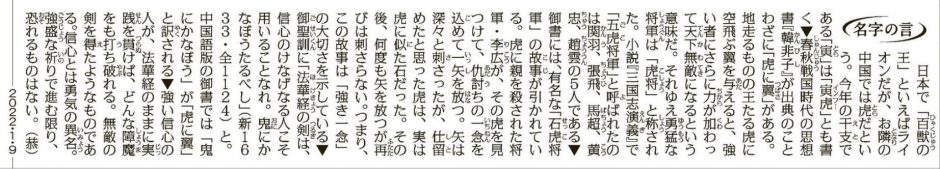 名字の言
日本で「百獣の
王」といえばライ
オンだが、お隣の
中国では虎だとい
う。今年の干支で
ある「寅」は「寅虎」とも書
く▼春秋戦国時代の思想
書『韓非子』が出典のこと
わざに「虎に翼」がある。
地走るものの王たる虎に
空飛ぶ翼を与えると、強
い者にさらに力が加わっ
て天下無敵になるという
意味だ。それゆえ勇猛な
将軍は「虎将」と称され
た。小説『三国志演義』で
「五虎将軍」と呼ばれたの
は関羽、張飛、馬超、黄
忠、趙雲の５人である▼
御書には、有名な「石虎将
軍」の故事が引かれてい
る。虎に親を殺された将
軍・李広が、その虎を見
つけて、仇討ちの一念を
込めて一矢を放つ。矢は
深々と刺さったが、仕留
めたと思った虎は、実は
虎に似た石だった。その
後、何度も矢を放つが再
びは刺さらない。つまり、
この故事は「強き一念」
の大切さを示している▼
御聖訓に「法華経の剣は、
信心のけなげなる人こそ
用いることなれ。鬼にか
なぼうたるべし」（新１６
３３・全１１２４）と。
中国語版の御書では「鬼
にかなぼう」が「虎に翼」
と訳される▼強い信心の
人が、法華経のままに実
践を貫けば、どんな障魔
をも打ち破れる。無敵の
剣を得たようなものであ
る。信心とは勇気の異名。
強盛な祈りで進む限り、
恐れるものはない。（恭）
２０２２・１・９